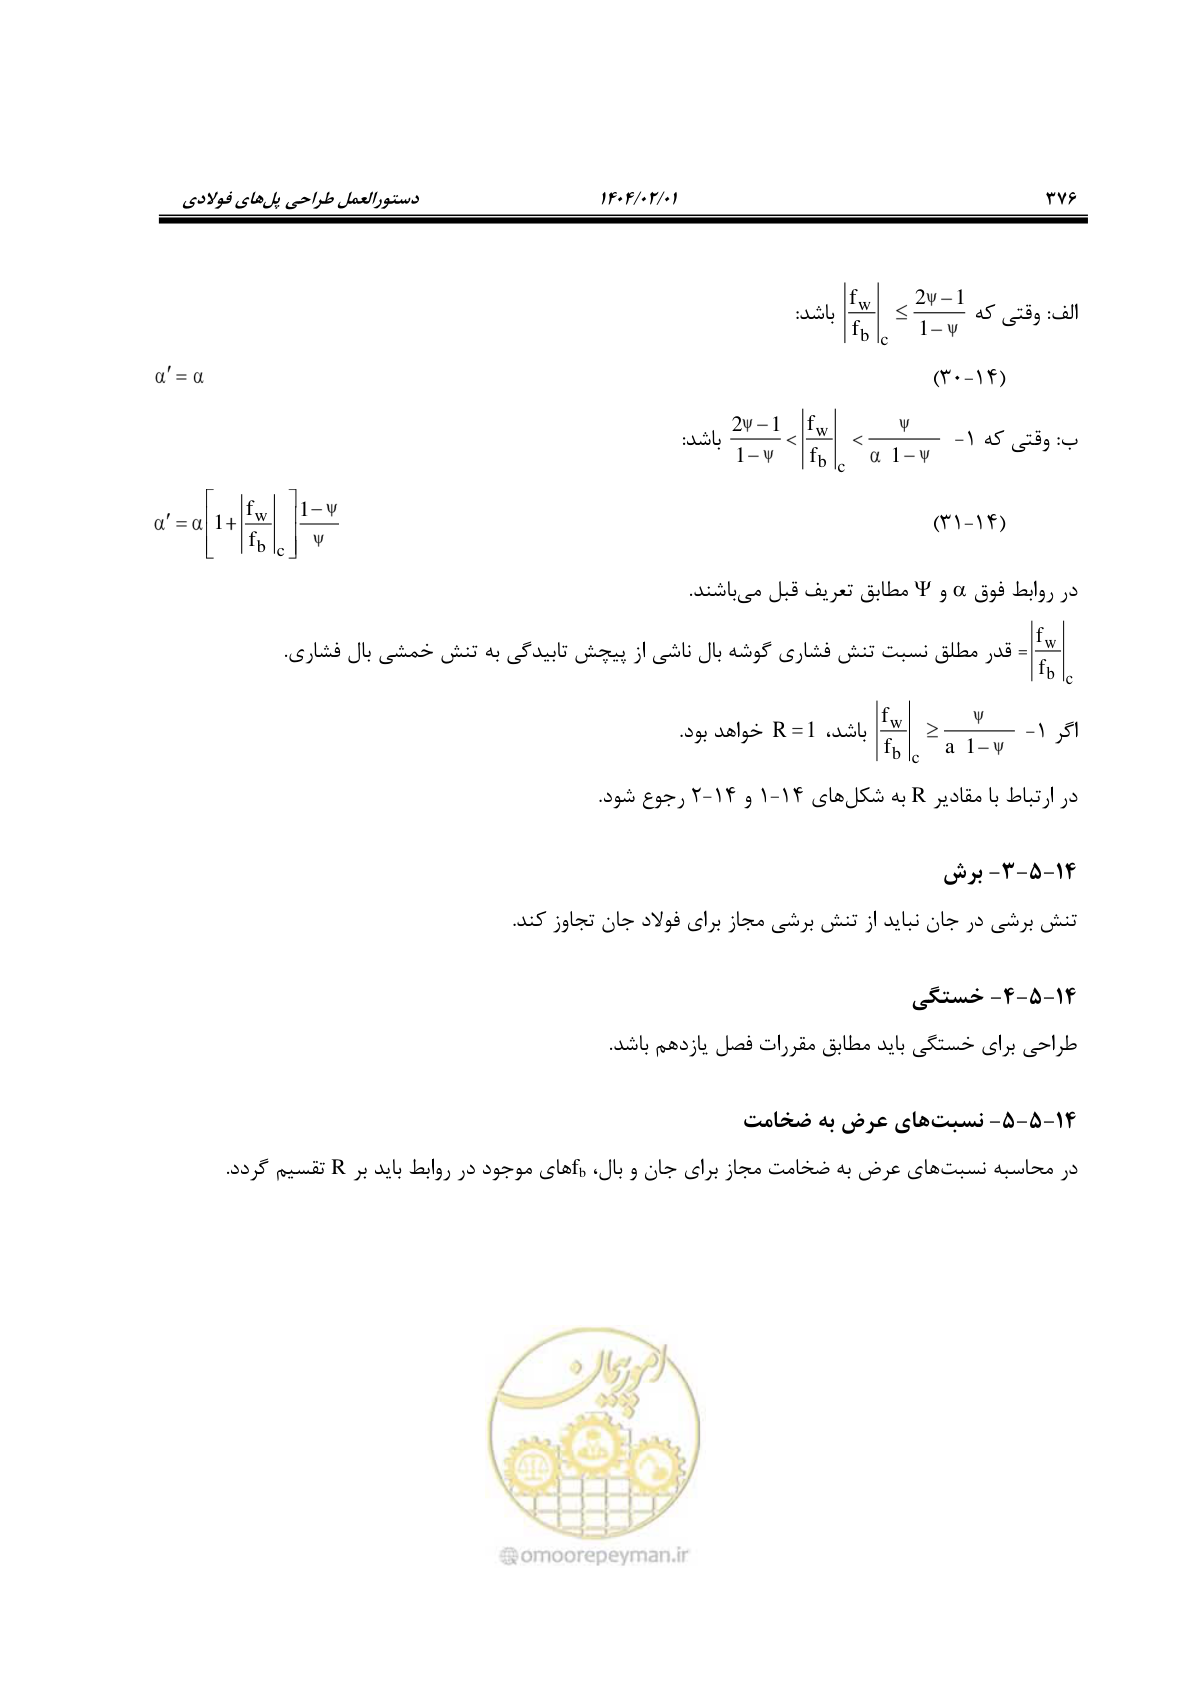 ۳۷۶ ۱۴۰۴/۰۲/۰۱ دستورالعمل طراحی پل‌های فولادی
الف: وقتی که |f_w/f_b|_c ≤ (2ψ−1)/(1−ψ) باشد:
(۱۴-۳۰) α′ = α
ب: وقتی که (2ψ−1)/(1−ψ) < |f_w/f_b|_c < ψ/(α 1−ψ) −۱ باشد:
(۱۴-۳۱) α′ = α[1+|f_w/f_b|_c] (1−ψ)/ψ
در روابط فوق α و Ψ مطابق تعریف قبل می‌باشند.
|f_w/f_b|_c = قدر مطلق نسبت تنش فشاری گوشه بال ناشی از پیچش تابیدگی به تنش خمشی بال فشاری.
اگر |f_w/f_b|_c ≥ ψ/(a 1−ψ) −۱ باشد، R = 1 خواهد بود.
در ارتباط با مقادیر R به شکل‌های ۱۴-۱ و ۱۴-۲ رجوع شود.
۱۴-۵-۳- برش
تنش برشی در جان نباید از تنش برشی مجاز برای فولاد جان تجاوز کند.
۱۴-۵-۴- خستگی
طراحی برای خستگی باید مطابق مقررات فصل یازدهم باشد.
۱۴-۵-۵- نسبت‌های عرض به ضخامت
در محاسبه نسبت‌های عرض به ضخامت مجاز برای جان و بال، f_bهای موجود در روابط باید بر R تقسیم گردد.
امور پیمان
omoorepeyman.ir